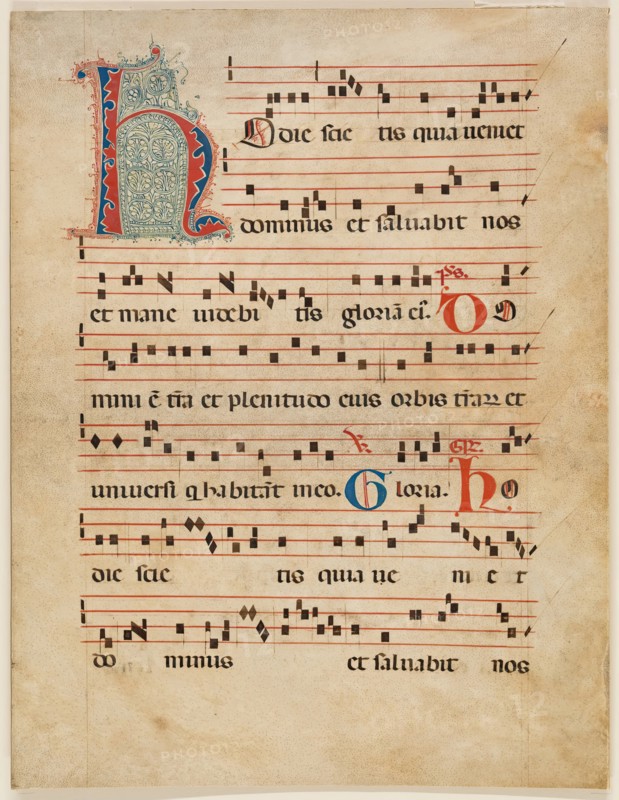 HOdie scie tis quia ueniet
dominus et saluabit nos
et mane uidebi tis gloriā ei. ps. DO
mini ē tr̄a et plenitudo eius orbis tr̄aꝝ et
uniuersi q habitāt in eo. Gloria. HO
die scie tis quia ue ni e t
do minus et saluabit nos